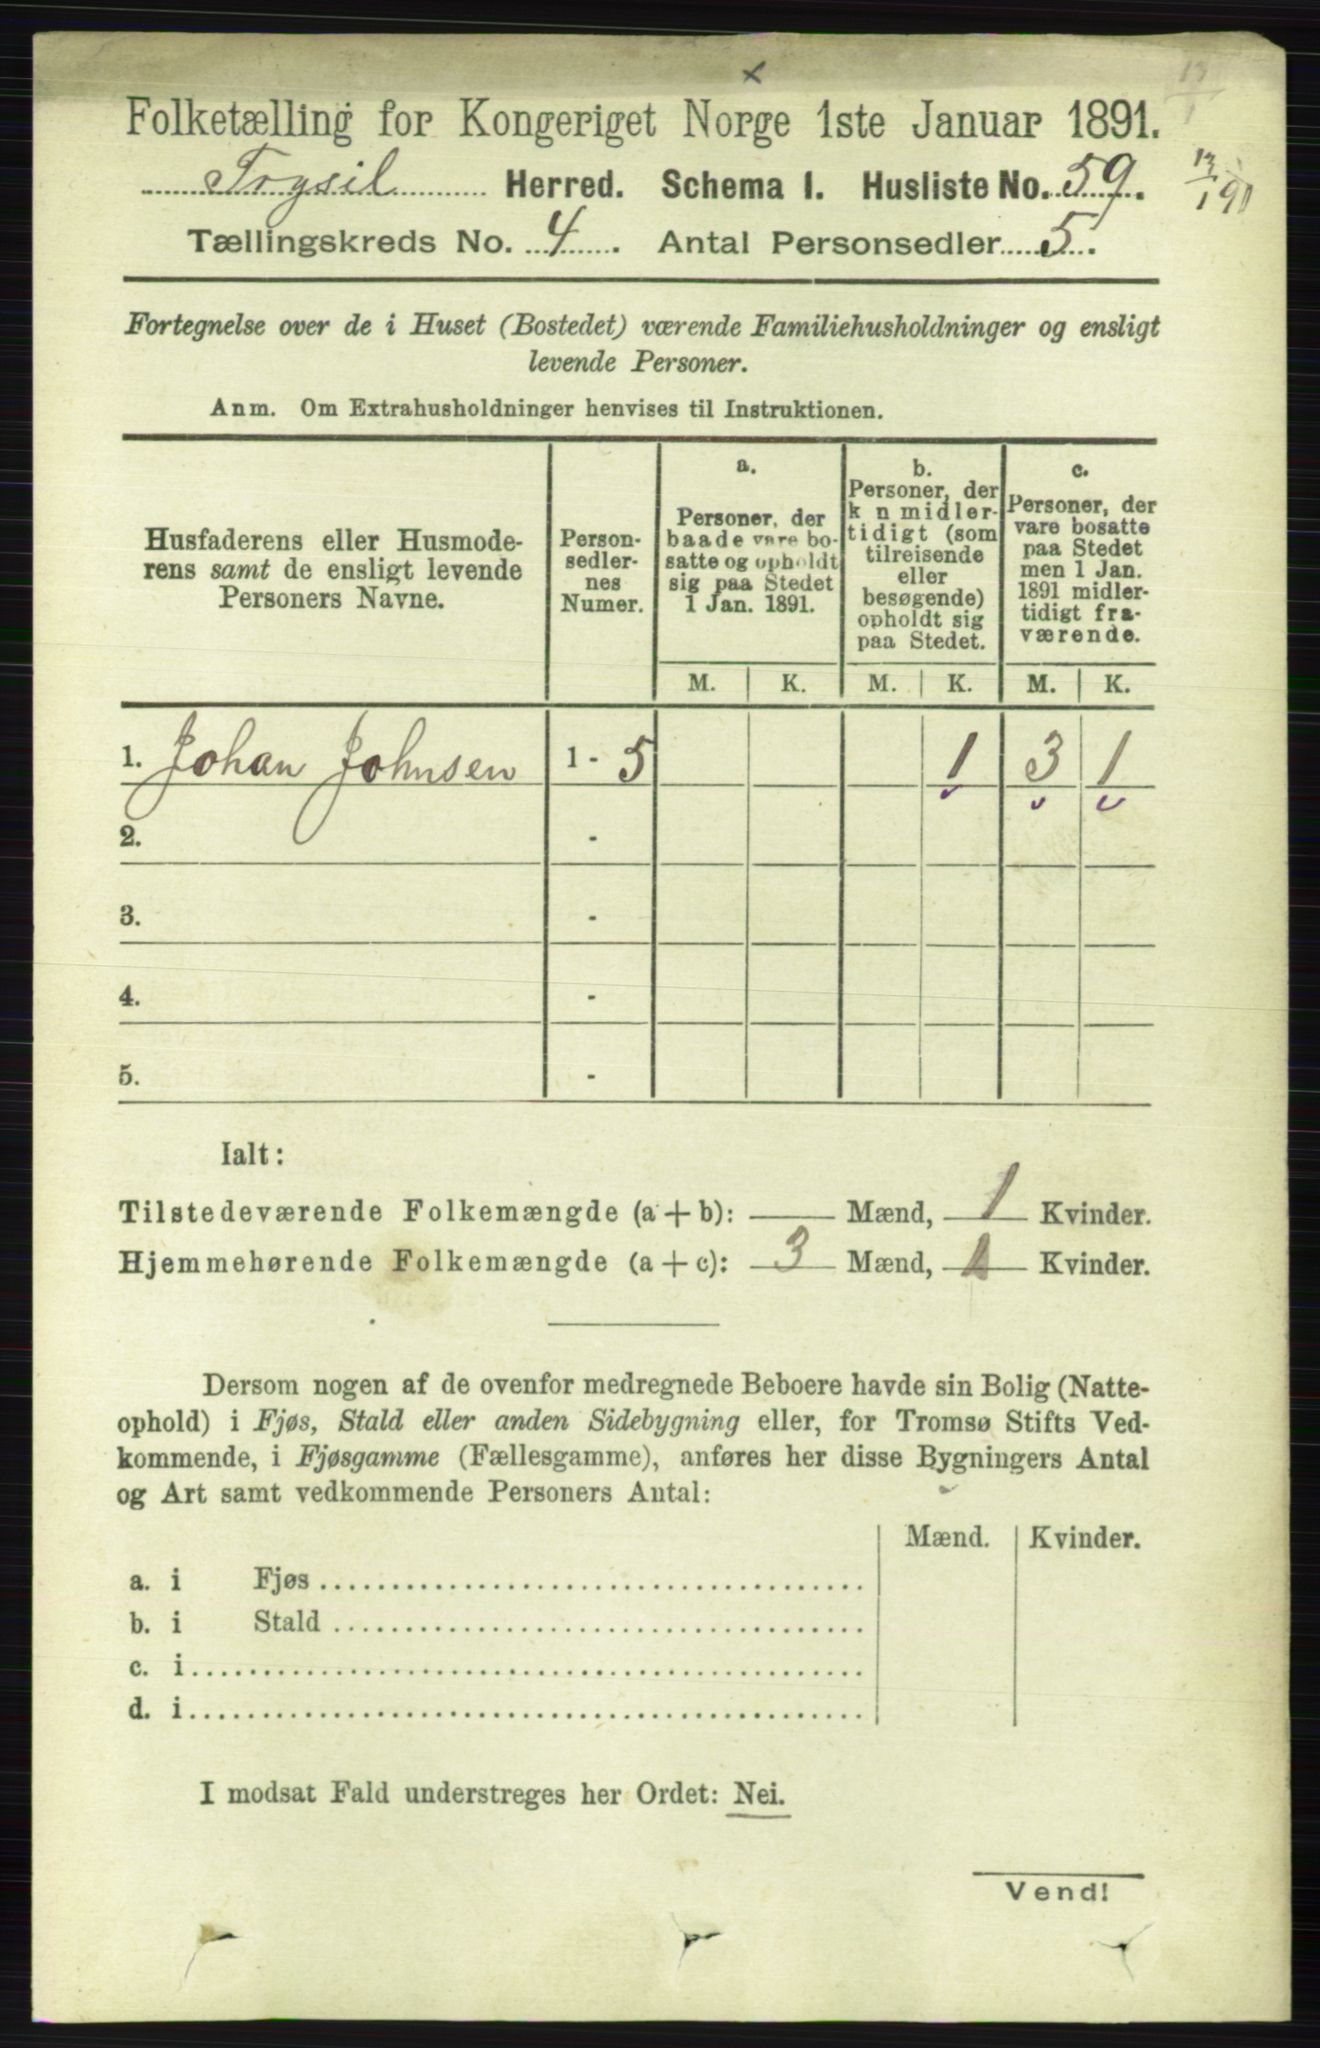 Folketælling for Kongeriget Norge 1ste Januar 1891.
Trysil Herred. Schema I. Husliste No. 59.
13/1 90
Tællingskreds No. 4. Antal Personsedler 5.
Fortegnelse over de i Huset (Bostedet) værende Familiehusholdninger og ensligt
levende Personer.
Anm. Om Extrahusholdninger henvises til Instruktionen.
Husfaderens eller Husmode-
rens samt de ensligt levende
Personers Navne.
Person-
sedler-
nes
Numer.
a.
Personer, der
baade vare bo-
satte og opholdt
sig paa Stedet
1 Jan. 1891.
b.
Personer, der
k n midler-
tidigt (som
tilreisende
eller
besøgende)
opholdt sig
paa Stedet.
c.
Personer, der
vare bosatte
paa Stedet
men 1 Jan.
1891 midler-
tidigt fra-
værende.
M. K. M. K. M. K.
1. Johan Johnsen 1 - 5 1 3 1
2. -
3. -
4. -
5. -
Ialt:
Tilstedeværende Folkemængde (a + b): Mænd, 1 Kvinder.
Hjemmehørende Folkemængde (a + c): 3 Mænd, 1 Kvinder.
Dersom nogen af de ovenfor medregnede Beboere havde sin Bolig (Natte-
ophold) i Fjøs, Stald eller anden Sidebygning eller, for Tromsø Stifts Ved-
kommende, i Fjøsgamme (Fællesgamme), anføres her disse Bygningers Antal
og Art samt vedkommende Personers Antal:
Mænd. Kvinder.
a. i Fjøs
b. i Stald
c. i
d. i
I modsat Fald understreges her Ordet: Nei.
Vend!